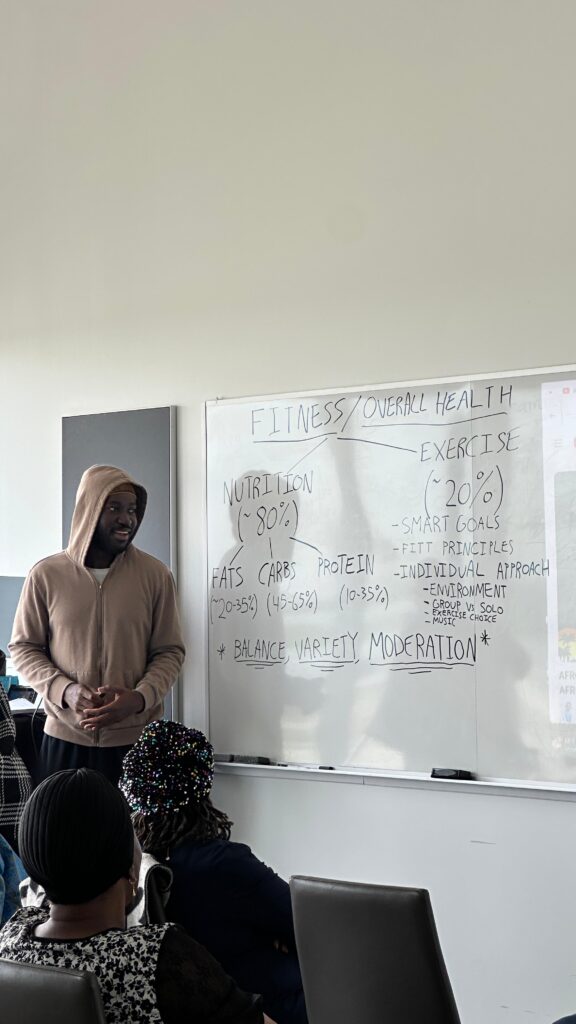 FITNESS/OVERALL HEALTH
NUTRITION
(~80%)
FATS CARBS PROTEIN
(~20-35%) (45-65%) (10-35%)
EXERCISE
(~20%)
- SMART GOALS
- FITT PRINCIPLES
- INDIVIDUAL APPROACH
- ENVIRONMENT
- GROUP VS SOLO
- EXERCISE CHOICE
- MUSIC
* BALANCE, VARIETY MODERATION *